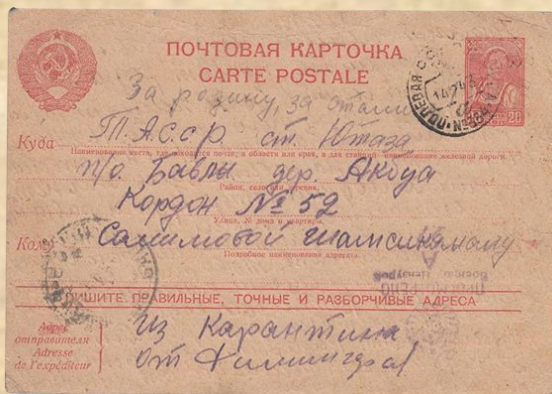 ПОЧТОВАЯ КАРТОЧКА
CARTE POSTALE
За родину, за
Куда Т.А.С.С.Р. ст. Ютаза
Наименование места, где находится почта, и области или края, а для станций наименование железной дороги
п/о. Бавлы дер. Акбуа
Район, село или деревня.
Кордон № 52
Улица, № дома и квартиры.
Кому Салимовой
Подробное наименование адресата
ПИШИТЕ ПРАВИЛЬНЫЕ, ТОЧНЫЕ И РАЗБОРЧИВЫЕ АДРЕСА
Адрес отправителя
Adresse de l'expéditeur
Из Карантина
от
20
ПОЛЕВАЯ